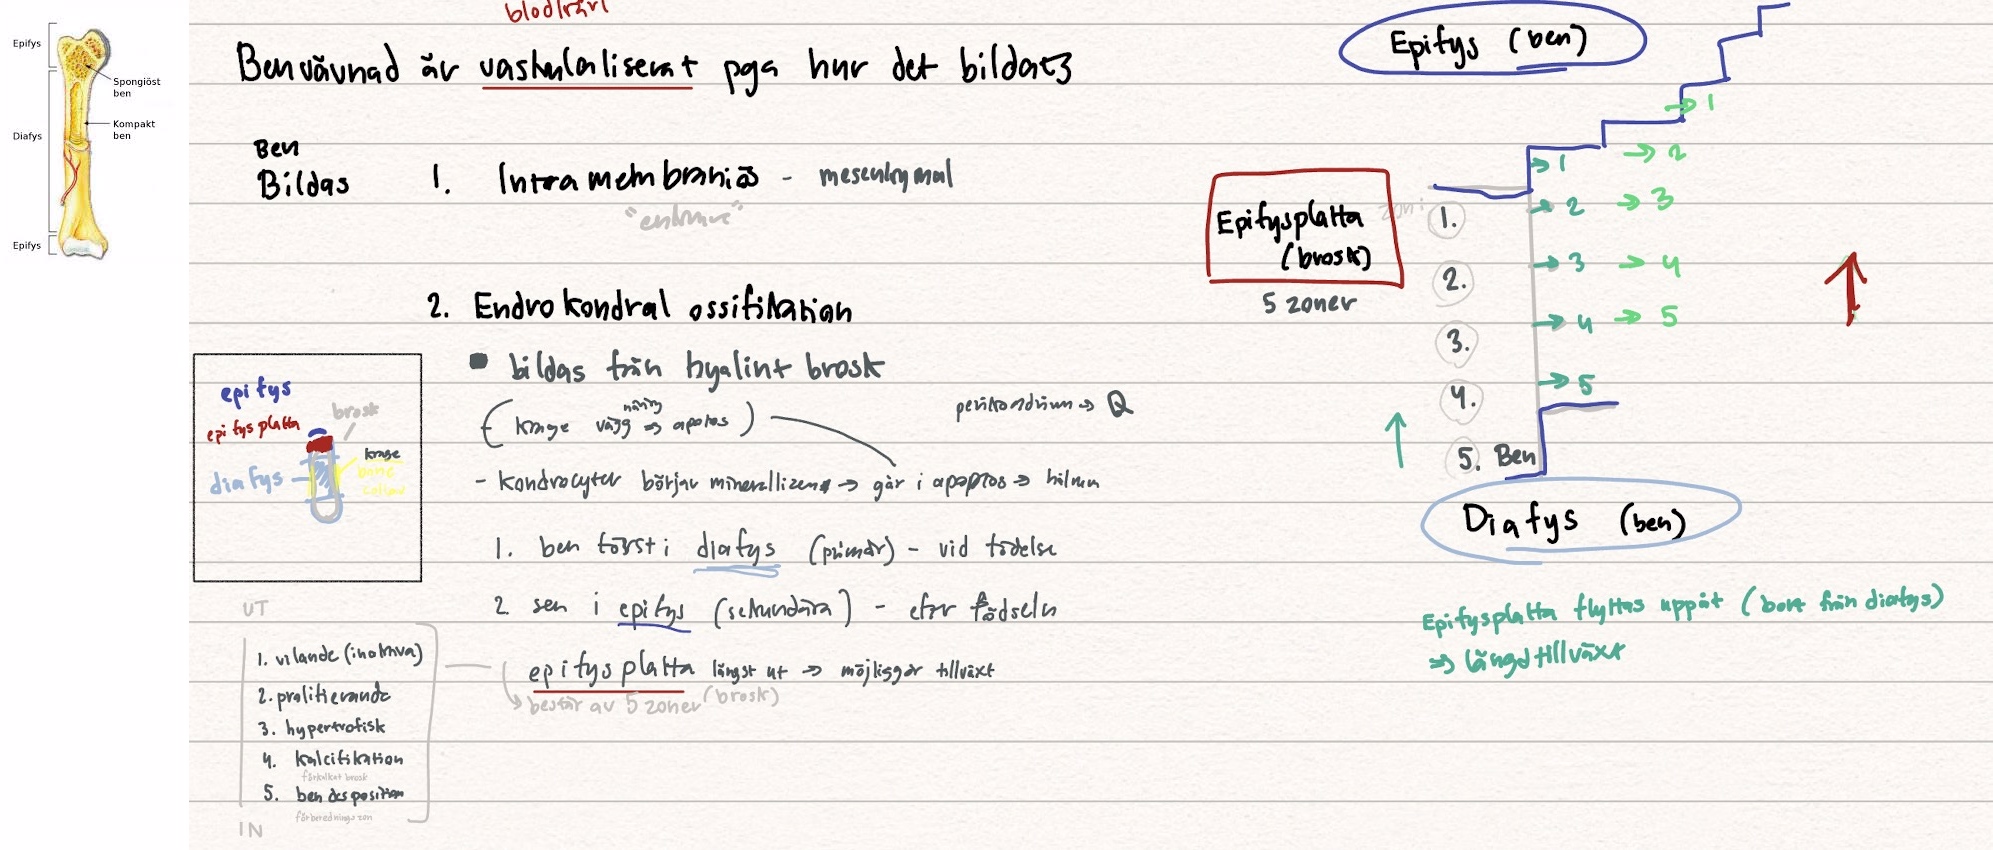 Epifys
Spongiöst
ben
Kompakt
ben
Diafys
Epifys
blodkärl
Benvävnad är vaskulaliserat pga hur det bildats
Ben
Bildas
1. Intramembraniös - mesenkymal
2. Endrokondral ossifikation
bildas från hyalint brosk
(krage vägg => apotos)
näring
perikondrium →
- kondrocyter börjar minerallizera → går i apoptos →
1. ben först i diafys (primär) - vid födelse
2. sen i epifys (sekundära) - efter födseln
epifysplatta längst ut → möjliggör tillväxt
består av 5 zoner (brosk)
epifys
brosk
epifysplatta
krage
bone
collar
diafys
UT
1. vilande (inaktiva)
2. prolifierande
3. hypertrofisk
4. kalcifikation
förkalkat brosk
5. ben desposition
förberednings zon
IN
Epifys (ben)
→ 1
→ 1 → 2
Epifysplatta
(brosk)
5 zoner
zon:
1. → 2 → 3
2. → 3 → 4
3. → 4 → 5
4. → 5
5. Ben
Diafys (ben)
Epifysplatta flyttas uppåt (bort från diafys)
=> längdtillväxt